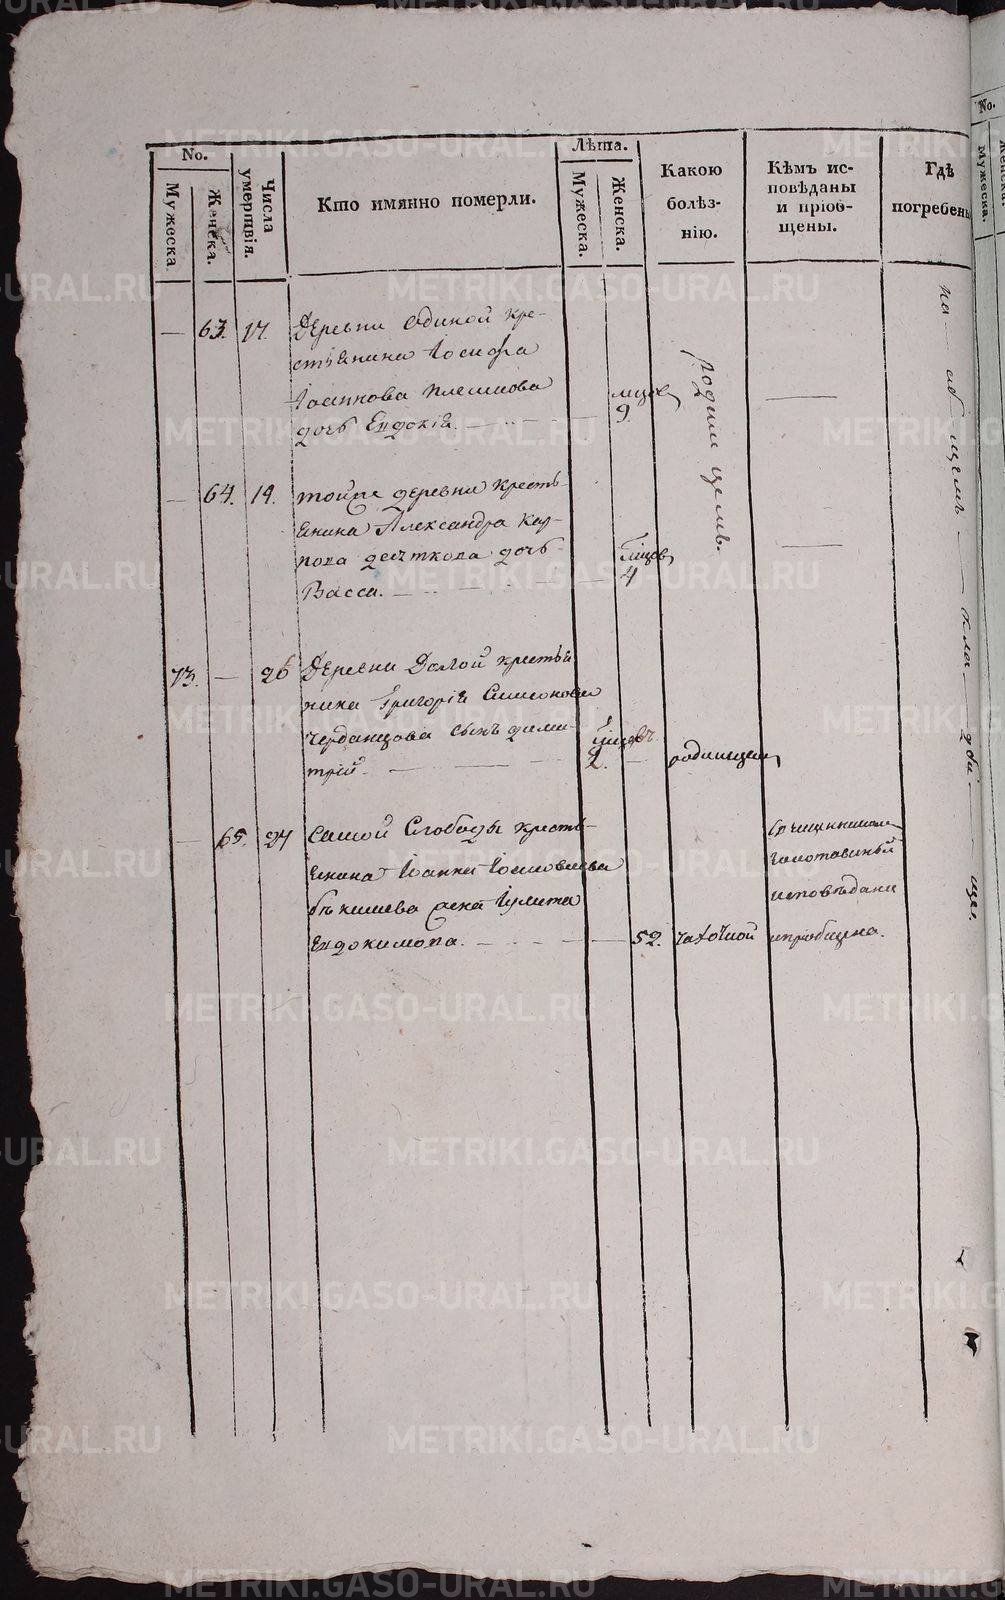 No.
Мужеска.
Женска.
Числа умершвія.
Кто имянно померли.
Лѣта.
Мужеска.
Женска.
Какою
болѣз-
нію.
Кѣмъ ис-
повѣданы
и пріоб-
щены.
Гдѣ
погребены
— 63. 17. Деревни Одиной кре-
стьянина Іосифа
Іоаннова Плешкова
дочь Евдокія.
9
родимцемъ.
— 64. 19. той же деревни кресть-
янина Александра Кар-
пова дочь
Васса.
4
73. — 26 Деревни Долгой крестья
нина Григорія Симонова
Чердынцова сынъ Дими-
трій.
2.
родимцем
— 65. 27 Самой Слободы кресть-
янина Іоанна Іосифова
жена Іулита
Евдокимова.
52. чахоткой
Священником
исповѣдана
и пріобщена.
на об щемъ клад би ще.
No.
Мужеска.
METRIKI.GASO-URAL.RU